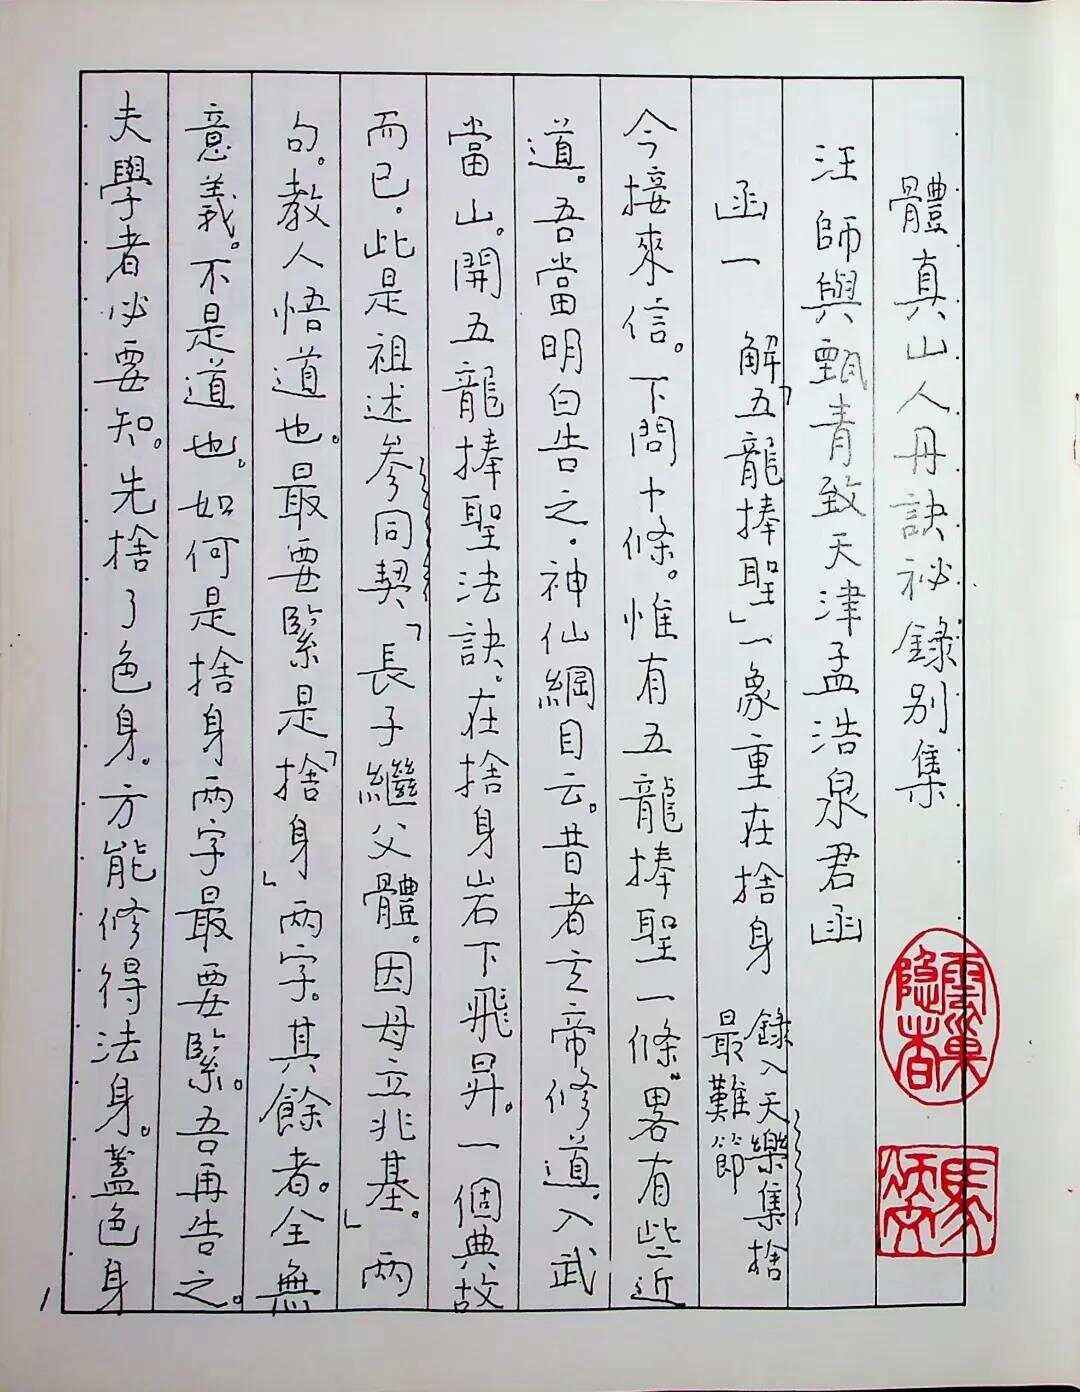 體真山人丹訣祕錄別集
汪師與甄青致天津孟浩泉君函
函一 解「五龍捧聖」一象重在捨身 錄入天樂集捨
最難節
今接來信。下問十條。惟有五龍捧聖一條。畧有些近
道。吾當明白告之。神仙綱目云。昔者玄帝修道。入武
當山。開五龍捧聖法訣。在捨身岩下飛昇。一個典故
而已。此是祖述參同契「長子繼父體。因母立兆基。」兩
句。教人悟道也。最要緊是「捨身」兩字。其餘者。全無
意義。不是道也。如何是捨身兩字最要緊。吾再告之。
夫學者必要知。先捨了色身。方能修得法身。蓋色身
雲巢
隐者
馬
炳
1